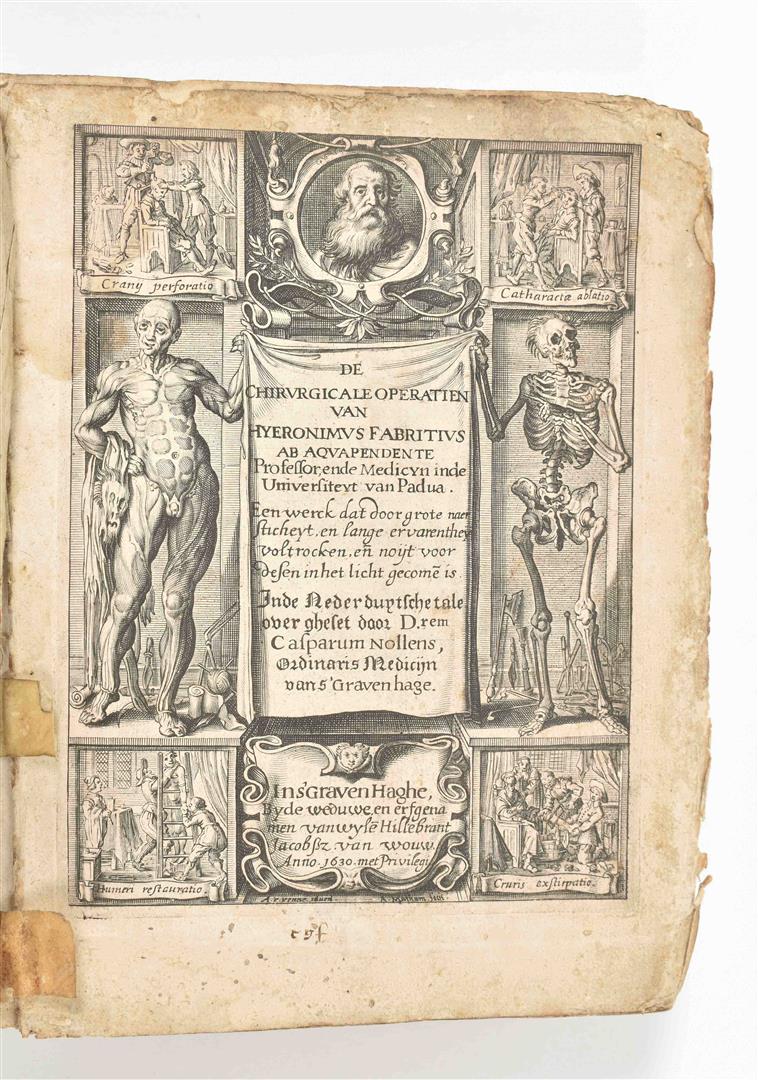 Crany perforatio
Catharactæ ablatio
DE
CHIRVRGICALE OPERATIEN
VAN
HYERONIMVS FABRITIVS
AB AQVAPENDENTE
Professor, ende Medicyn inde
Universiteyt van Padua.
Een werck dat door grote naer
sticheyt, en lange ervarenthey
voltrocken, en̄ noijt voor
desen in het licht gecomē is
Inde Nederduytsche tale
over gheset door D.rem
Casparum Nollens,
Ordinaris Medicijn
van s'Gravenhage.
In s'Graven Haghe,
By de weduwe, en erfgena
men van wylē Hillebrant
Jacobßz van wouw.
Anno. 1630. met Privilegi
Humeri restauratio.
Cruris exstirpatio.
A. v. venne inven.
A. Matham fecit.